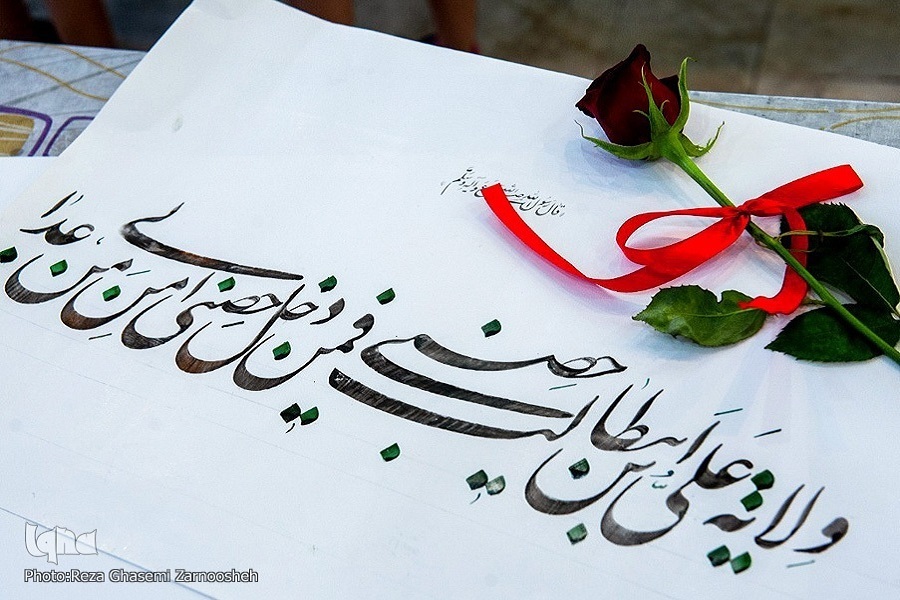 قال رسول الله صلی الله علیه و آله و سلم
ولایة علی بن ابیطالب حصنی فمن دخل حصنی امن من عذابی
iqna
Photo:Reza Ghasemi Zarnoosheh